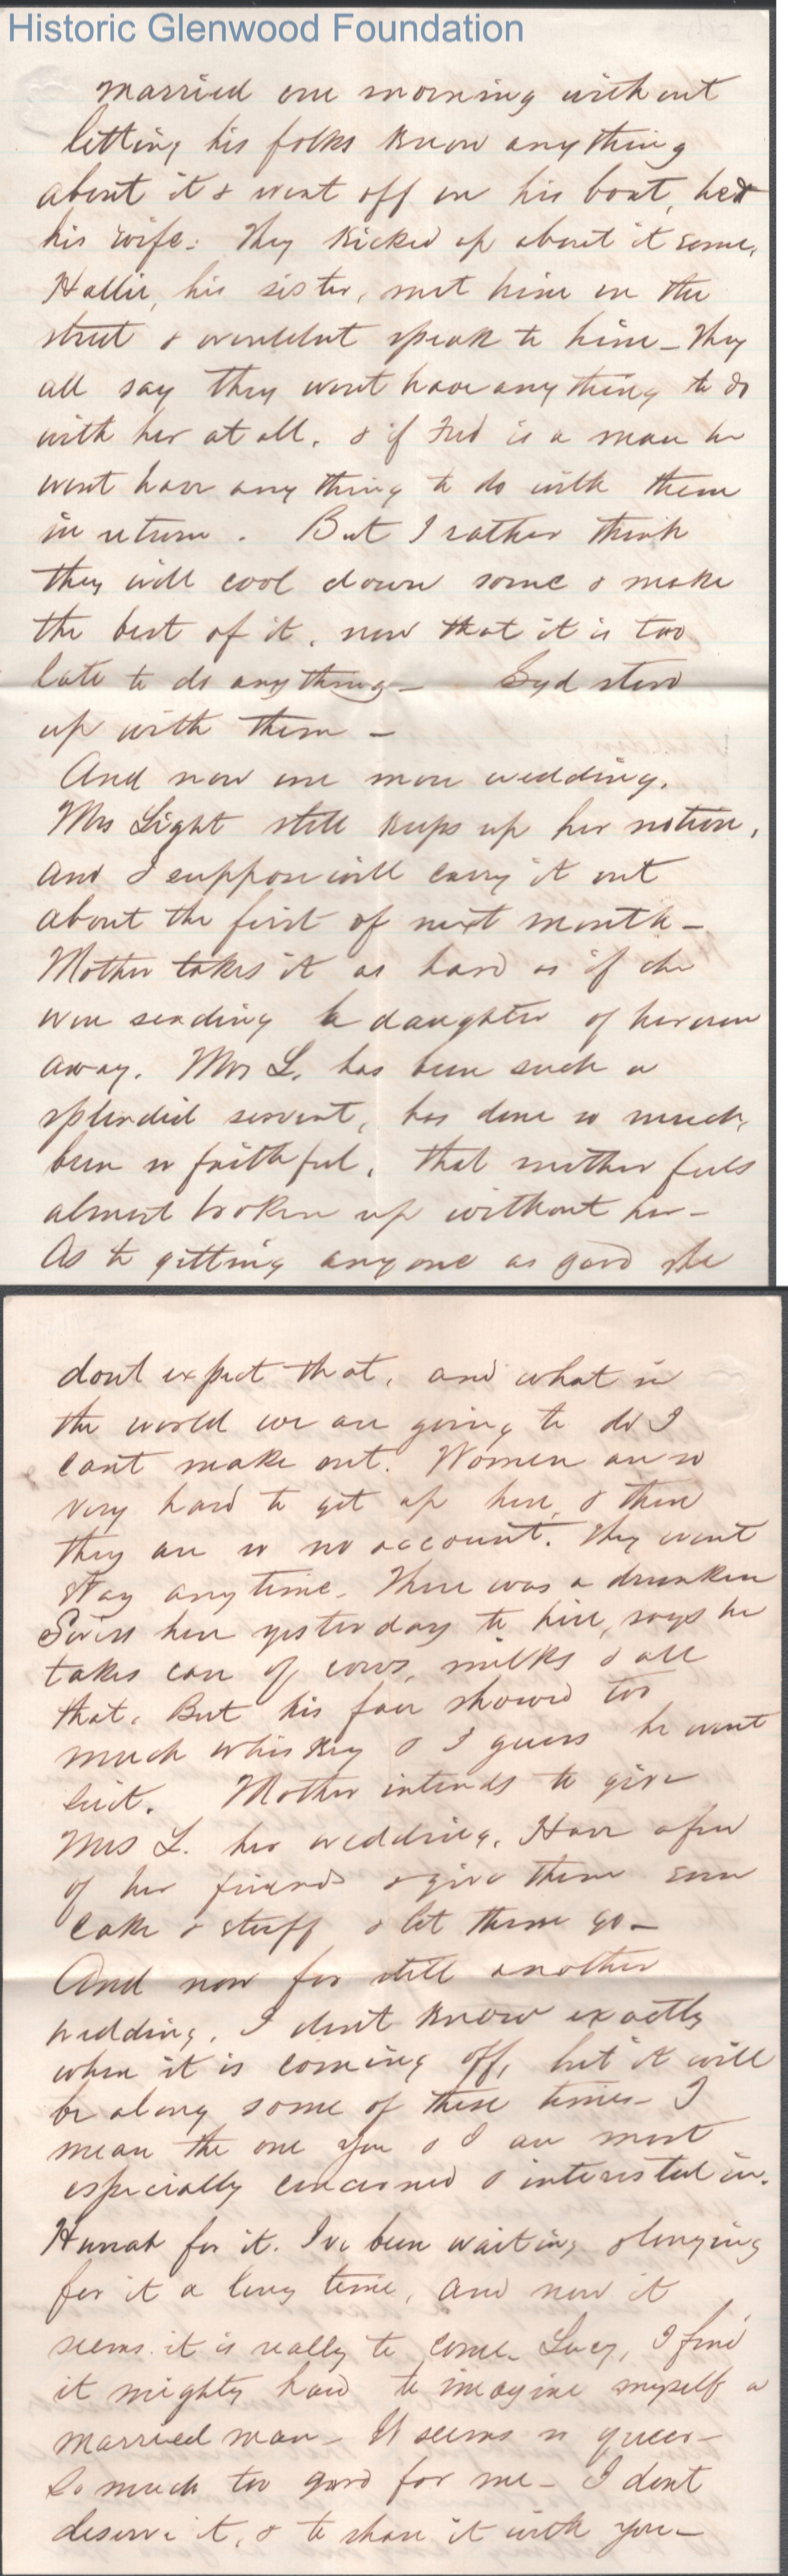 Historic Glenwood Foundation
married one morning without
letting his folks know anything
about it & went off on his boat, he &
his wife. They kicked up about it some.
Hallie, his sister, met him on the
street & wouldnt speak to him – They
all say they wont have anything to do
with her at all. & if Fred is a man he
wont have any thing to do with them
in return. But I rather think
they will cool down some & make
the best of it, now that it is too
late to do anything – Syd stood
up with them –
And now one more wedding.
Mrs Light still keeps up her notion,
and I suppose will carry it out
about the first of next month –
Mother takes it as hard as if she
were sending a daughter of her own
away. Mrs L. has been such a
splendid servant, has done so much,
been so faithful, that mother feels
almost broken up without her –
As to getting anyone as good she
dont expect that, and what in
the world we are going to do I
cant make out. Women are so
very hard to get up here & then
they are so no account. They wont
stay any time. There was a drunken
Swiss here yesterday to hire, says he
takes care of cows, milks & all
that. But his face showed too
much whiskey & I guess he wont
suit. Mother intends to give
Mrs L. her wedding. Have a few
of her friends & give them some
cake & stuff & let them go –
And now for still another
wedding. I dont know exactly
when it is coming off, but it will
be along some of these times – I
mean the one you & I are most
especially concerned & interested in.
Hurrah for it. Ive been waiting & longing
for it a long time, and now it
seems it is really to come. Lucy, I find
it mighty hard to imagine myself a
married man – It seems so queer –
So much too good for me – I dont
deserve it, & to share it with you –